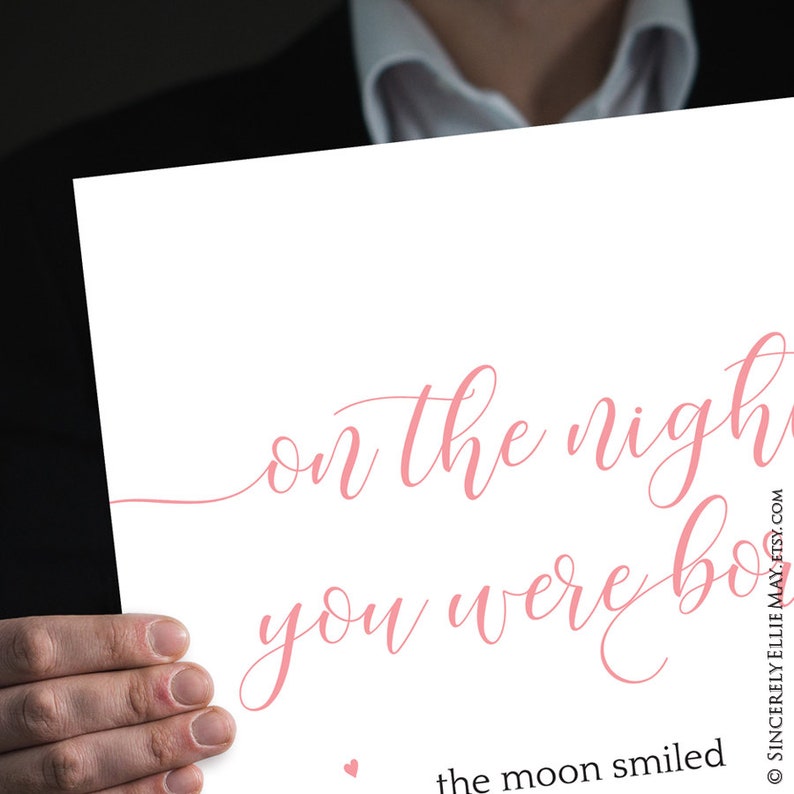 on the night
you were bor
the moon smiled
© SINCERELY ELLIE MAY.ETSY.COM